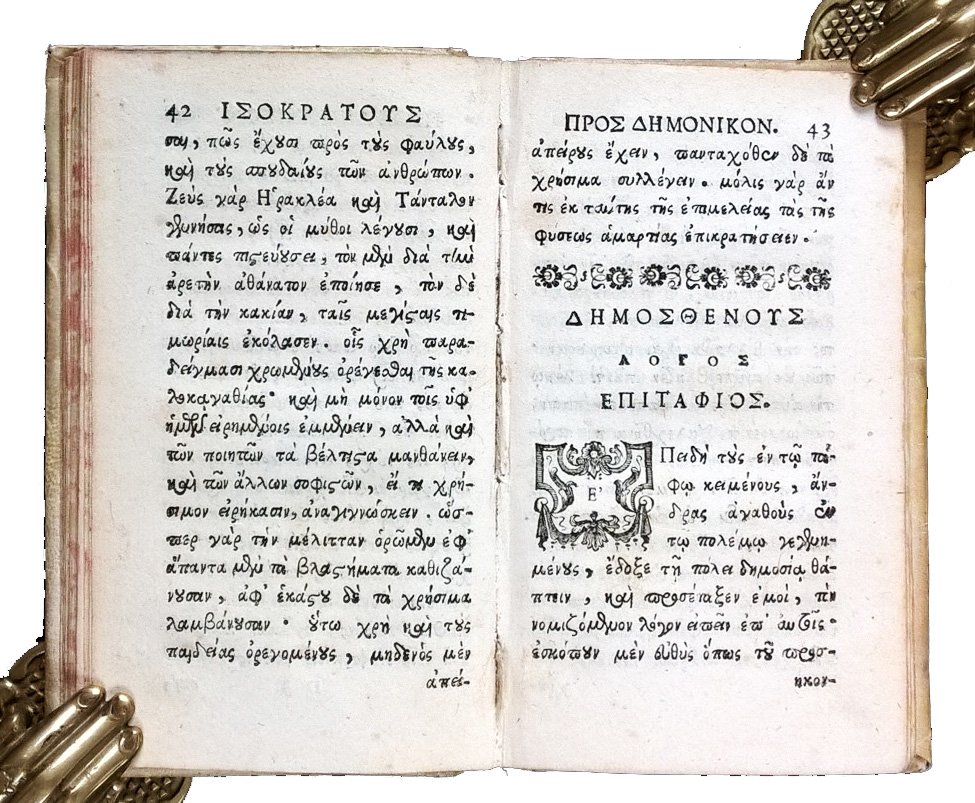 42 ΙΣΟΚΡΑΤΟΥΣ
σαι, πῶς ἔχουσι πρὸς τοὺς φαύλους,
καὶ τοὺς σπουδαίους τῶν ἀνθρώπων.
Ζεὺς γὰρ Ἡρακλέα καὶ Τάνταλον
γεννήσας, ὡς οἱ μύθοι λέγουσι, καὶ
πάντες πιστεύουσι, τὸν μὲν διὰ τὴν
ἀρετὴν ἀθάνατον ἐποίησε, τὸν δὲ
διὰ τὴν κακίαν, ταῖς μεγίσταις τι-
μωρίαις ἐκόλασεν. οἷς χρὴ παρα-
δείγμασι χρωμένους ὀρέγεσθαι τῆς κα-
λοκαγαθίας· καὶ μὴ μόνον τοῖς ὑφ'
ἡμῶν εἰρημένοις ἐμμένειν, ἀλλὰ καὶ
τῶν ποιητῶν τὰ βέλτιστα μανθάνειν,
καὶ τῶν ἄλλων σοφιστῶν, εἴ τι χρή-
σιμον εἰρήκασιν, ἀναγιγνώσκειν. ὥσ-
περ γὰρ τὴν μέλιτταν ὁρῶμεν ἐφ'
ἅπαντα μὲν τὰ βλαστήματα καθιζά-
νουσαν, ἀφ' ἑκάστου δὲ τὰ χρήσιμα
λαμβάνουσαν· οὕτω χρὴ καὶ τοὺς
παιδείας ὀρεγομένους, μηδενὸς μὲν
ἀπεί-
ΠΡΟΣ ΔΗΜΟΝΙΚΟΝ. 43
ἀπείρους ἔχειν, πανταχόθεν δὲ τὰ
χρήσιμα συλλέγειν. μόλις γὰρ ἄν
τις ἐκ ταύτης τῆς ἐπιμελείας τὰς τῆς
φύσεως ἁμαρτίας ἐπικρατήσειεν.
ΔΗΜΟΣΘΕΝΟΥΣ
ΛΟΓΟΣ
ΕΠΙΤΑΦΙΟΣ.
Ε'Πειδὴ τοὺς ἐν τῷ τά-
φῳ κειμένους, ἄν-
δρας ἀγαθοὺς ἐν
τῷ πολέμῳ γεγενη-
μένους, ἔδοξε τῇ πόλει δημοσίᾳ θά-
πτειν, καὶ προσέταξεν ἐμοὶ, τὸν
νομιζόμενον λόγον εἰπεῖν ἐπ' αὐτοῖς·
ἐσκόπουν μὲν εὐθὺς ὅπως τοῦ προσ-
ηκον-